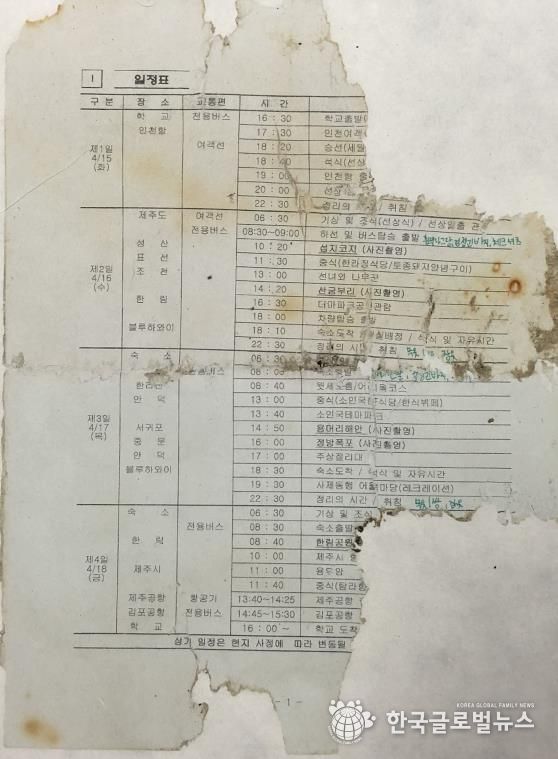 I 일정표
구 분 장 소 교통편 시 간
제1일 4/15 (화)
학 교 전용버스 16 : 30 학교출발(
인천항 17 : 30 인천여객
여객선 18 : 20 승선(세월
18 : 40 석식(선상
19 : 00 인천항 출
20 : 00 선상
22 : 30 정리의 / 취침
제2일 4/16 (수)
제주도 여객선 06 : 30 기상 및 조식(선상식) / 선상일출 관
전용버스 08:30~09:00 하선 및 버스탑승 출발
성 산 10 : 20 섭지코지 (사진촬영)
표 선 11 : 30 중식(한라정식당/토종돼지양념구이)
조 천 13 : 00 선녀와 나무꾼
14 : 20 산굼부리 (사진촬영)
한 림 16 : 30 더마파크공연관람
18 : 00 차량탑승 출발
블루하와이 18 : 10 숙소도착 / 실배정 / 석식 및 자유시간
22 : 30 정리의 시간 / 취침
제3일 4/17 (목)
숙 소 06 : 30
08 : 00 숙소출발
한라산 08 : 40 윗세오름/어리목코스
안 덕 13 : 00 중식(소인국 식당/한식뷔페)
13 : 40 소인국테마파크
서귀포 14 : 50 용머리해안 (사진촬영)
중 문 16 : 00 정방폭포 (사진촬영)
안 덕 17 : 00 주상절리대
블루하와이 18 : 30 숙소도착 / 석식 및 자유시간
19 : 30 사제동행 어울 마당(레크레이션)
22 : 30 정리의 시간 / 취침
제4일 4/18 (금)
숙 소 06 : 30 기상 및 조식
전용버스 08 : 30 숙소출발
한 림 08 : 40 한림공원
10 : 00 제주시
제주시 11 : 00 용두암
11 : 40 중식(탐라
제주공항 항공기 13:40~14:25 제주공항
김포공항 전용버스 14:45~15:30 김포공항
학 교 16 : 00 ~ 학교 도착
상기 일정은 현지 사정에 따라 변동될
- 1 -
KOREA GLOBAL FAMILY NEWS
한국글로벌뉴스